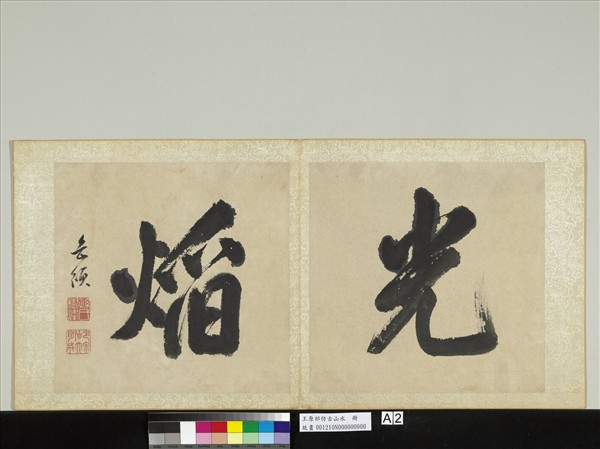 光
焰
岳頒
王原祁仿古山水 冊
故畫 001210N000000000
A2